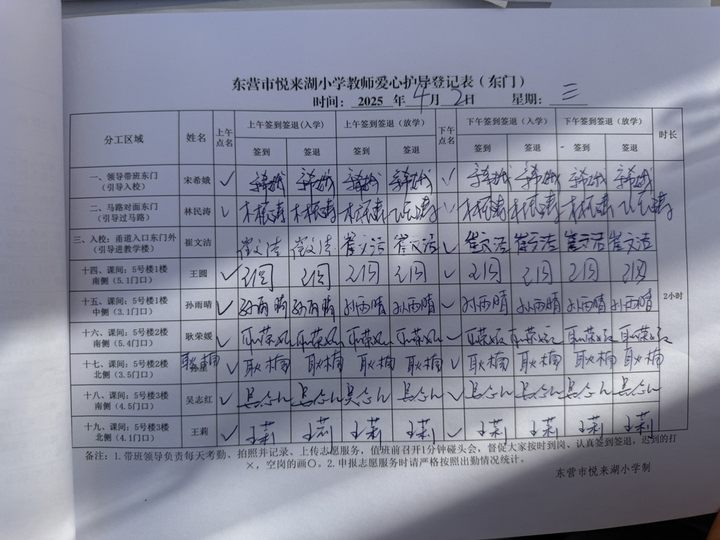 东营市悦来湖小学教师爱心护导登记表（东门）
时间： 2025 年 4 月 2 日 星期： 三
分工区域 姓名 上午点名 上午签到签退(入学) 上午签到签退（放学） 下午点名 下午签到签退（入学） 下午签到签退（放学） 时长
签到 签退 签到 签退 签到 签退 签到 签退
一、领导带班东门（引导入校） 宋希娥 ✓ 宋希娥 宋希娥 宋希娥 宋希娥 ✓ 宋希娥 宋希娥 宋希娥 宋希娥
二、马路对面东门（引导过马路） 林民涛 ✓ 林民涛 林民涛 林民涛 林民涛 ✓ 林民涛 林民涛 林民涛 林民涛
三、入校：甬道入口东门外（引导进教学楼） 崔文洁 崔文洁 崔文洁 崔文洁 崔文洁 ✓ 崔文洁 崔文洁 崔文洁 崔文洁
十四、课间：5号楼1楼南侧（5.1门口） 王圆 ✓ 王圆 王圆 王圆 王圆 ✓ 王圆 王圆 王圆 王圆
十五、课间：5号楼1楼中侧（3.1门口） 孙雨晴 ✓ 孙雨晴 孙雨晴 孙雨晴 孙雨晴 ✓ 孙雨晴 孙雨晴 孙雨晴 孙雨晴 2小时
十六、课间：5号楼2楼南侧（5.4门口） 耿荣媛 ✓ 耿荣媛 耿荣媛 耿荣媛 耿荣媛 ✓ 耿荣媛 耿荣媛 耿荣媛 耿荣媛
十七、课间：5号楼2楼北侧（3.5门口） 耿楠 ✓ 耿楠 耿楠 耿楠 耿楠 ✓ 耿楠 耿楠 耿楠 耿楠
十八、课间：5号楼3楼南侧（4.5门口） 吴志红 ✓ 吴志红 吴志红 吴志红 吴志红 ✓ 吴志红 吴志红 吴志红 吴志红
十九、课间：5号楼3楼北侧（4.1门口） 王莉 ✓ 王莉 王莉 王莉 王莉 ✓ 王莉 王莉 王莉 王莉
备注：1.带班领导负责每天考勤、拍照并记录、上传志愿服务，值班前召开1分钟碰头会，督促大家按时到岗、认真签到签退，迟到的打
×，空岗的画〇。2.申报志愿服务时请严格按照出勤情况统计。
东营市悦来湖小学制